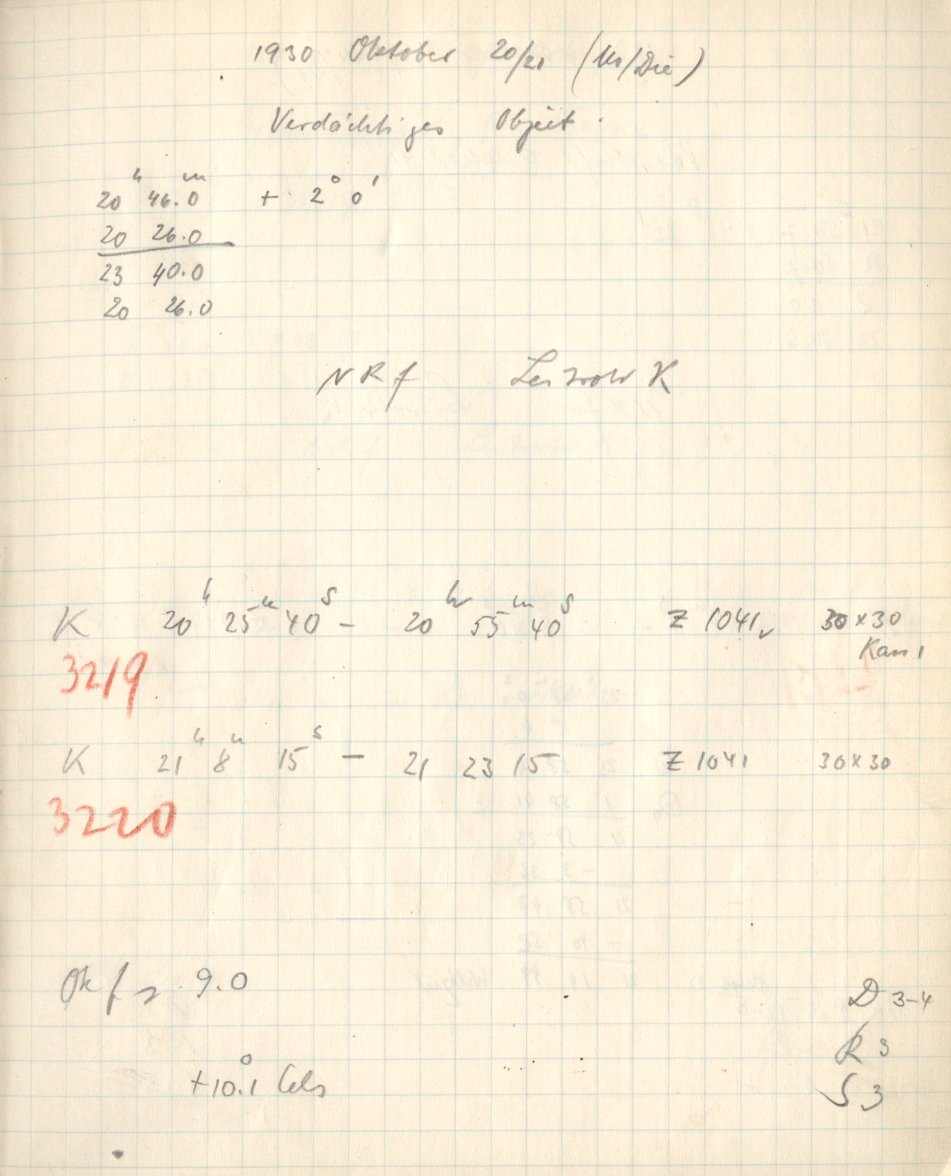 1930 Oktober 20/21 (Mo/Die)
Verdächtiges Objekt.
20ʰ 46.0ᵐ + 2° 0'
20 26.0
23 40.0
20 26.0
NRf K
K 20ʰ 25ᵐ 40ˢ – 20ʰ 55ᵐ 40ˢ Z 1041 30×30
Kass 1
3219
K 21ʰ 8ᵐ 15ˢ – 21 23 15 Z 1041 30×30
3220
Ok f 9.0
D 3-4
R 3
+10.1° Cels
S 3